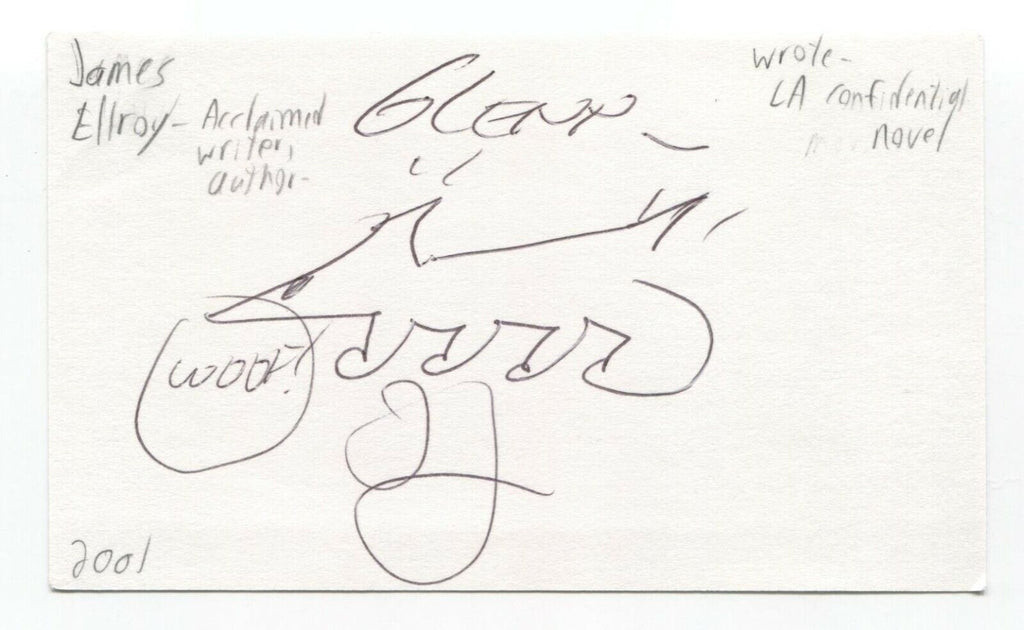 James
Ellroy- Acclaimed
writer,
author-
wrote-
LA confidential
novel
GLENN
WOOF!
2001